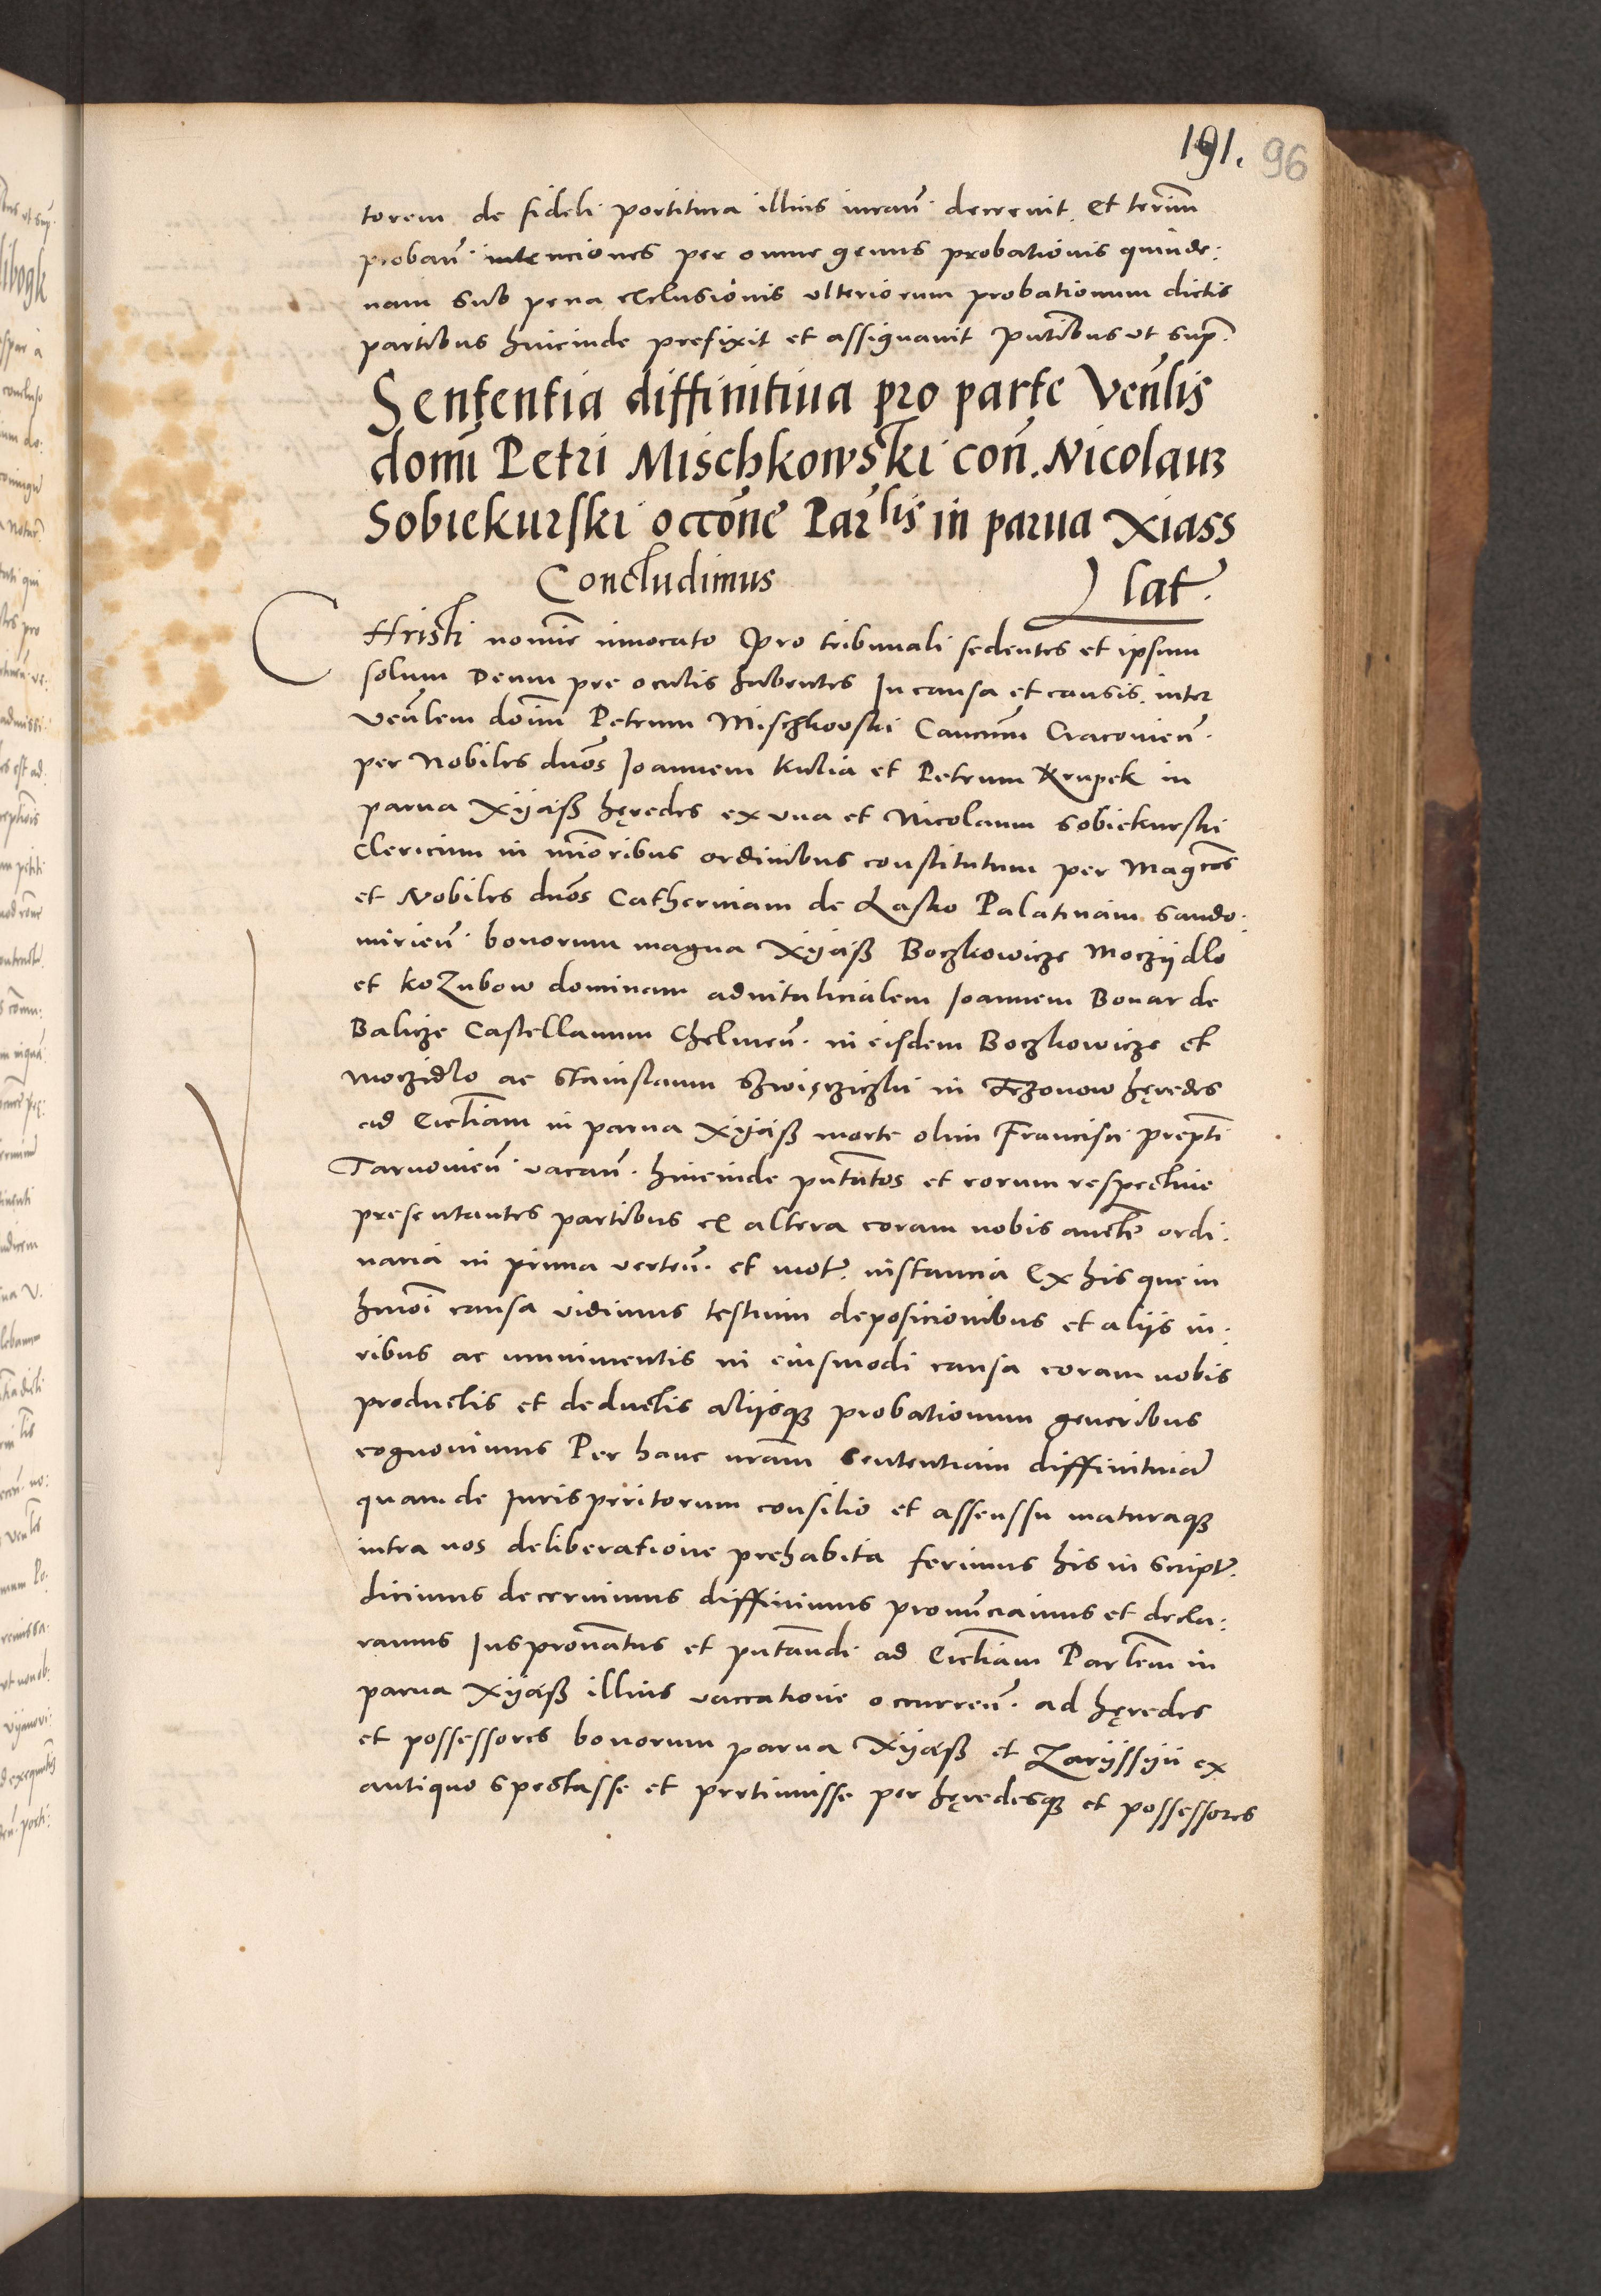 191. 96
torem de fideli portitura illius iuran̄. decrevit. Et termin̄
proban̄. intenciones per omne genus probationis quinde:
nam sub pena exclusionis ulteriorum probationum dictis
partibus hincinde prefixit et assignavit p̄ntibus ut sup̄.
Sententia diffinitiva pro parte Ven̄lis
domī Petri Mischkowski con̄. Nicolaum
Sobiekurski occōne Par̄lis in parva Xiass
Concludimus lat.
CHristi nomīe invocato Pro tribunali sedentes et ipsum
solum Deum pre oculis habentes In causa et causis. inter
Ven̄lem dōim Petrum Mischkovski Can̄cum Cracovien̄.
per Nobiles dnōs Joannem Kulia et Petrum Krupek in
parva Xyąiß hęredes ex una et Nicolaum Sobiekurski
Clericum in minōribus ordinibus constitutum per Maḡcos
et Nobiles dnōs Catherinam de Lasko Palatinam Sando:
mirien̄. bonorum magna Xyąiß Boczkowicze Moczijdlo
et Kozubow dominam advitalicialem Joannem Bonar de
Balicze Castellanum Chelmen̄. in eisdem Boczkowicze et
Moczidlo ac Stanislaum Szwięcziczki in Trzonow hęredes
ad Ecc̄līam in parva Xyąiß morte olim Francisci prep̄ti
Tarnovien̄. vacan̄. hincinde p̄ntātos et eorum respective
presentantes partibus ex altera coram nobis auctē ordi:
naria in prima verten̄. et mot. instancia Ex his que in
hmōi causa vidimus testium deposicionibus et aliis iu:
ribus ac munimentis in eiusmodi causa coram nobis
productis et deductis aliisqꝫ probationum generibus
cognovimus Per hanc nr̄am Sententiam diffinitivā
quam de Jurisperitorum consilio et assenssu maturaqꝫ
intra nos deliberatione prehabita ferimus his in script.
dicimus decernimus diffinimus pronunciamus et decla:
ramus Jus pronātus et p̄ntāndi ad Ecc̄līam Par̄lem in
parva Xyąiß illius vaccatione occurren̄. ad hęredes
et possessores bonorum parva Xyąiß et Zarijssijū ex
antiquo spectasse et pertinuisse per hęredesqꝫ et possessores